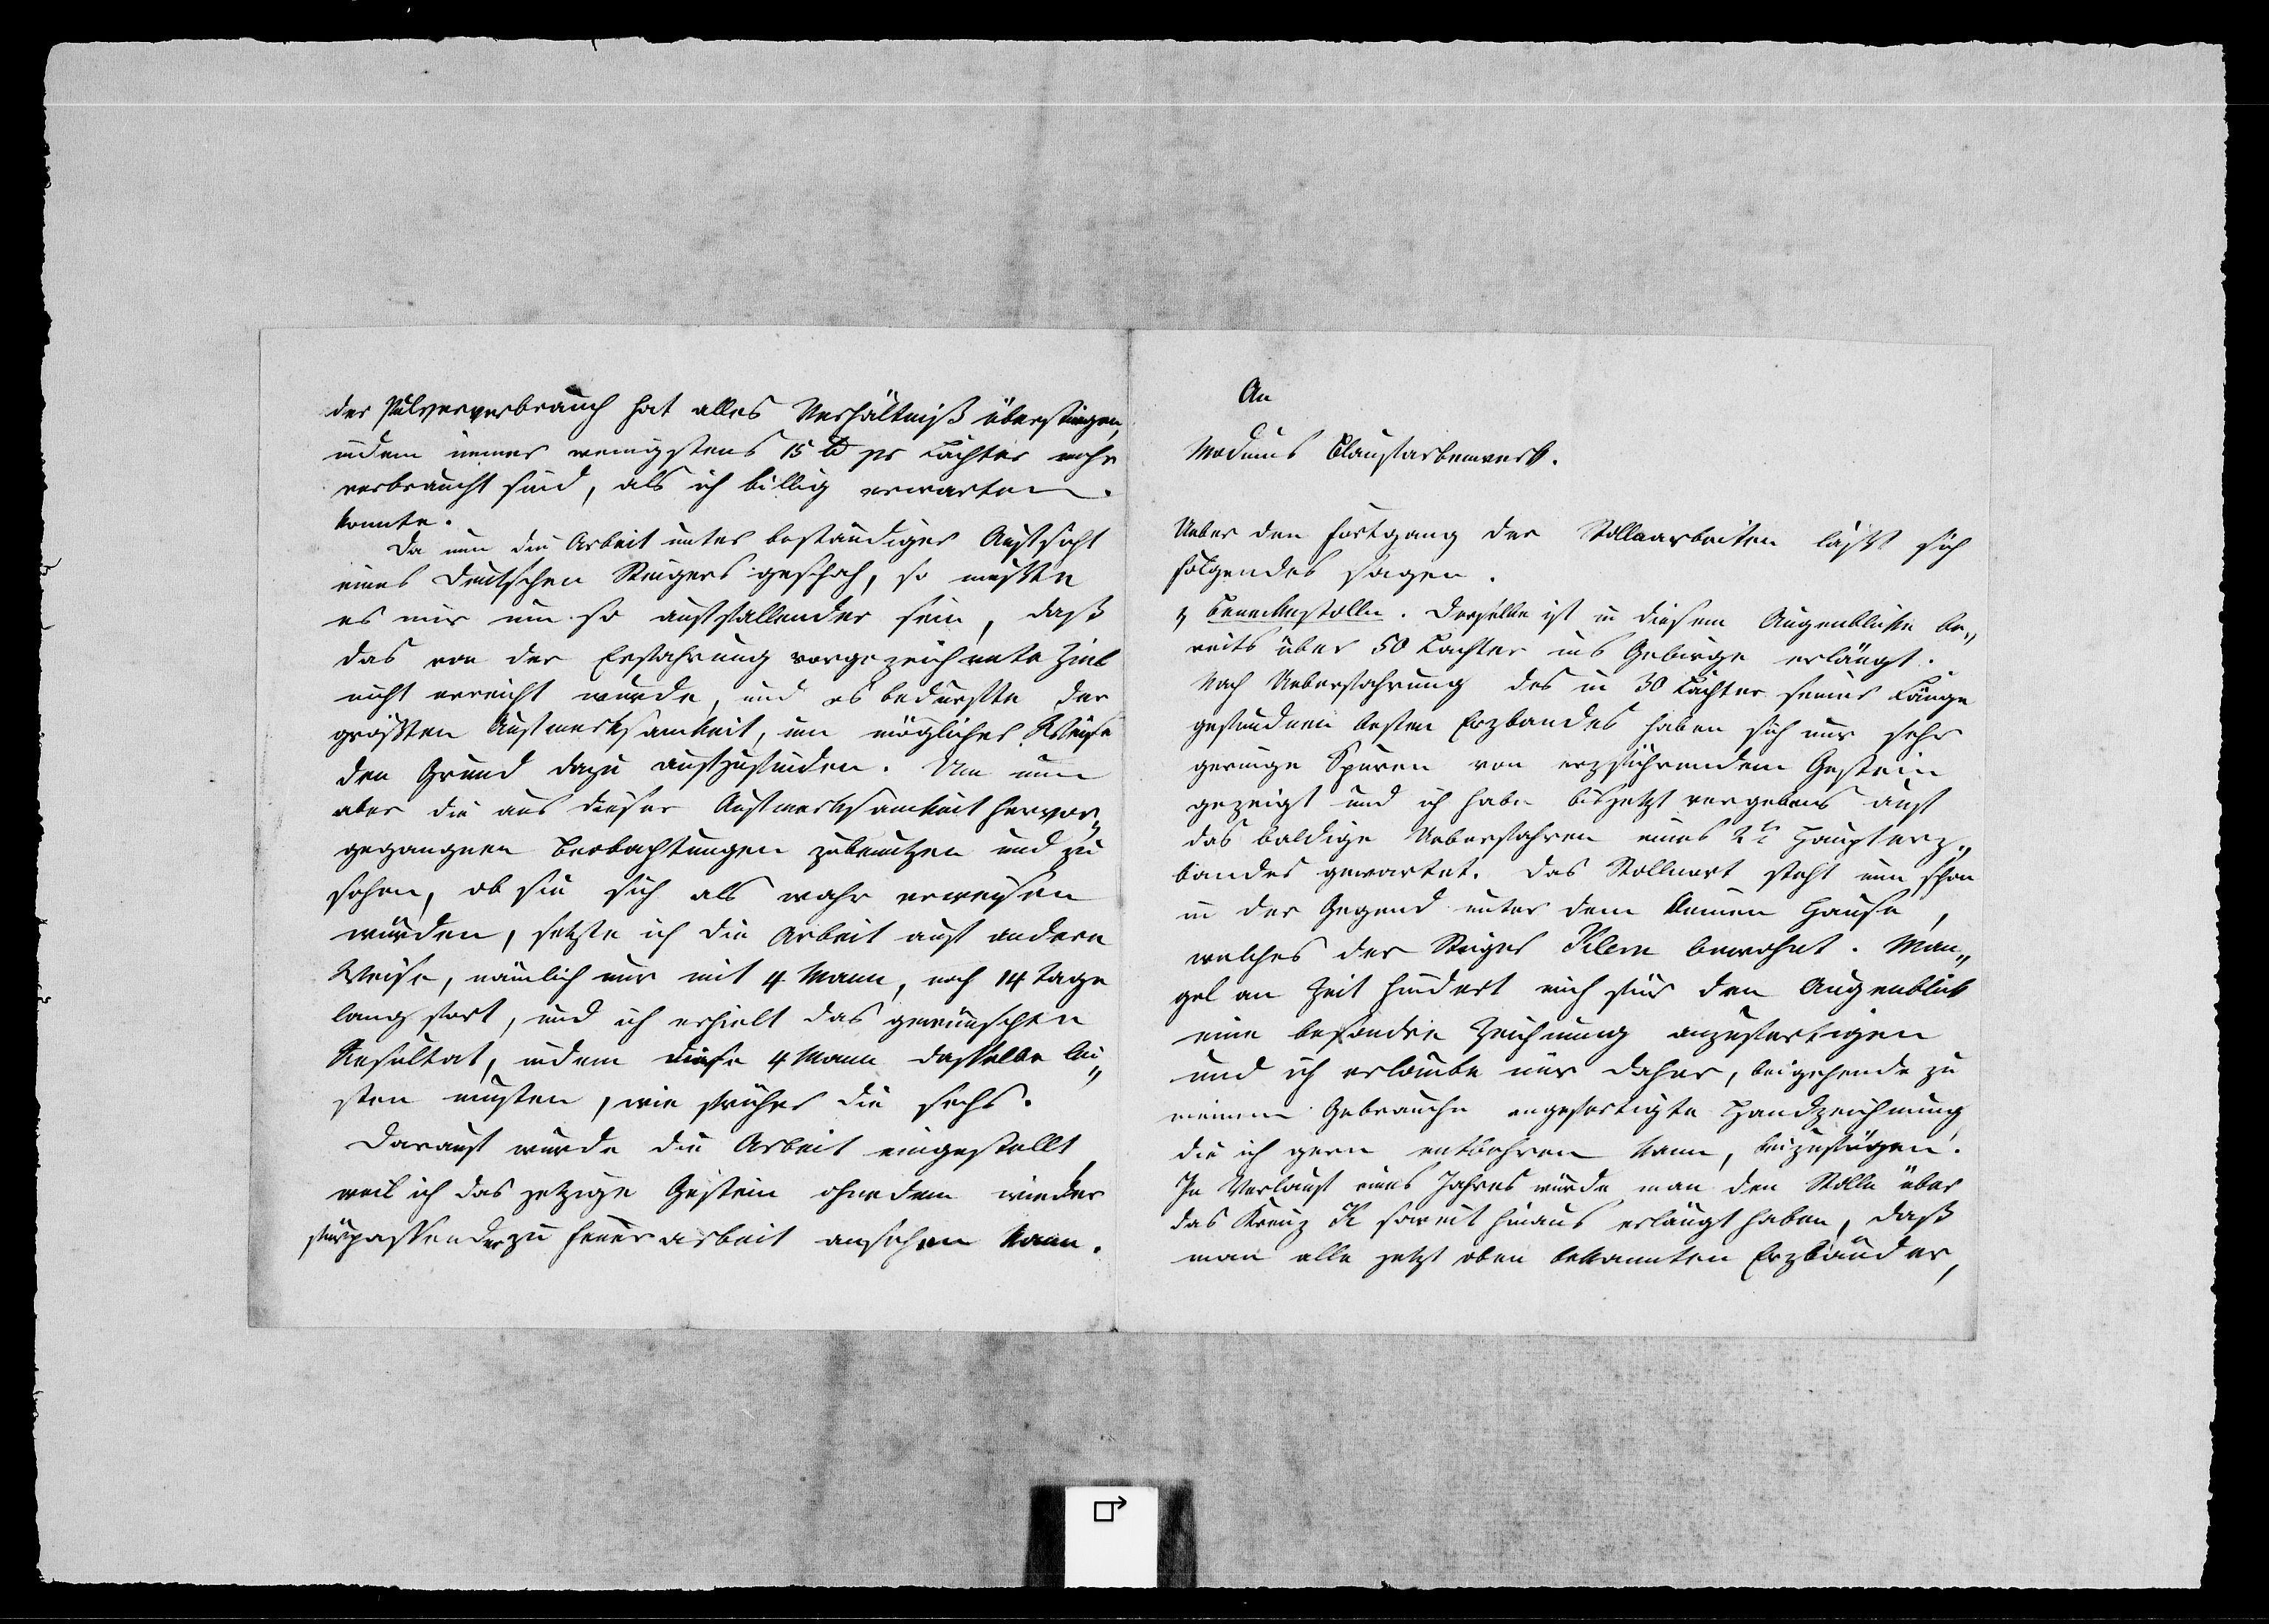 der Pulververbrauch hat alles Verhältniß überstiegen,
indem immer wenigstens 15 ℔ pr Lachter mehr
verbraucht sind, als ich billig erwarten
konnte.
Da nun die Arbeit unter beständiger Aufsicht
eines deutschen Steigers geschah, so mußte
es mir um so auffallender sein, daß
das von der Erfahrung vorgezeichnete Ziel
nicht erreicht wurde, und es bedurfte der
größten Aufmerksamkeit, um möglicher Weise
den Grund dazu aufzufinden. Um nun
aber die aus dieser Aufmerksamkeit hervor„
gegangnen Beobachtungen zubenutzen und zu
sehen, ob sie sich als wahr erweisen
würden, setzte ich die Arbeit auf andere
Weise, nämlich nur mit 4 Mann, noch 14 Tage
lang fort, und ich erhielt das gewünschte
Resultat, indem diese 4 Mann dasselbe lei„
sten mußten, wie früher die sechs.
Darauf wurde die Arbeit eingestellt
weil ich das jetzige Gestein ohnedem wieder
für passender zu Feuerarbeit ansehen kann.
An
Modums Blaufarbenwerk.
Ueber den Fortgang der Stollnarbeiten läßt sich
folgendes sagen.
Beneckestolln. Derselbe ist in diesem Augenblicke be„
reits über 50 Lachter ins Gebirge erlängt.
Nach Ueberfahrung des in 30 Lachter seiner Länge
gefundnen besten Erzbandes haben sich nur sehr
geringe Spuren von erzführendem Gestein
gezeigt und ich habe bis jetzt vergebens auf
das baldige Ueberfahren eines 2t Haupterz„
bandes gewartet. Das Stollnort steht nun schon
in der Gegend unter dem kleinen Hause,
welches der Steiger Klem bewohnt. Man„
gel an Zeit hindert mich für den Augenblick
eine besondre Zeichnung anzufertigen
und ich erlaube mir daher, beigehende zu
meinem Gebrauche angefertigte Handzeichnung
die ich gern entbehren kann, beizufügen.
In Verlauf eines Jahres würde man den Stolln über
das Kreuz K soweit hinaus erlängt haben, daß
man alle jetzt oben bekannten Erzbänder,